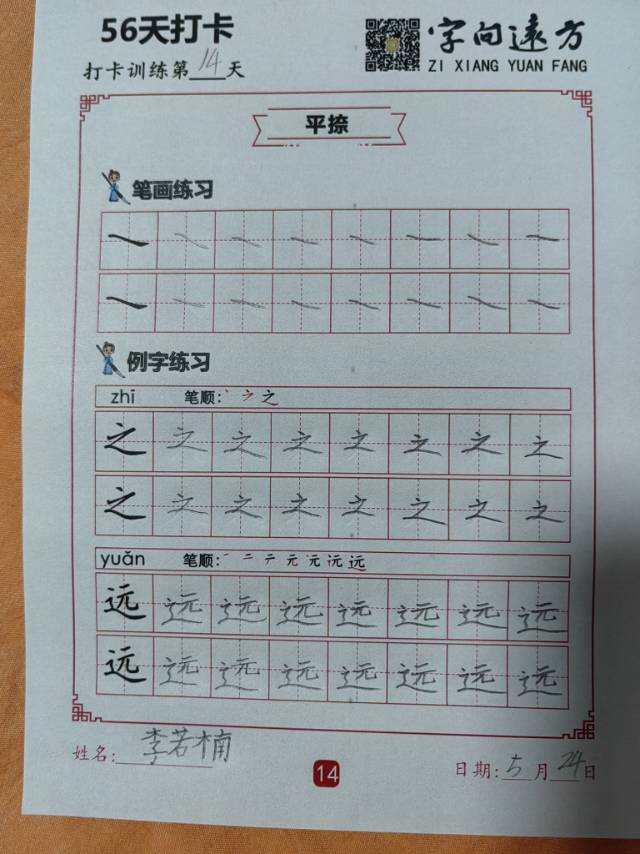 56天打卡
字向遠方
打卡训练第14天
ZI XIANG YUAN FANG
平捺
笔画练习
例字练习
zhī 笔顺: 丶 ㇇ 之
之 之 之 之 之 之 之 之
之 之 之 之 之 之 之 之
yuǎn 笔顺: 一 二 テ 元 元 沅 远
远 远 远 远 远 远 远 远
远 远 远 远 远 远 远 远
姓名: 李若楠
14
日期: 5月24日